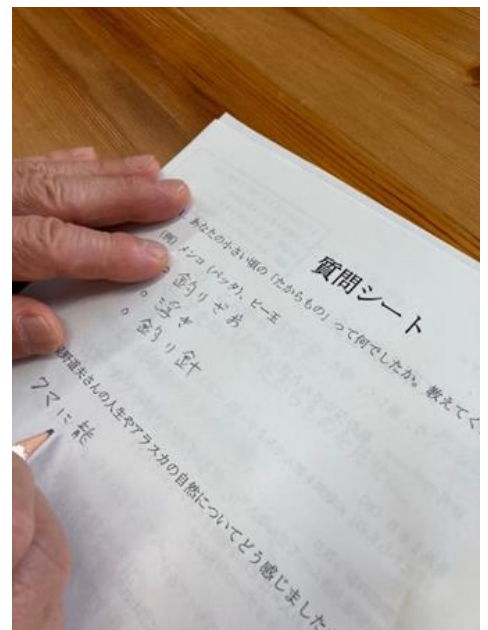 質問シート
あなたの小さい頃の「たからもの」って何でしたか。教えてく
(例) メンコ (パッタ)、ビー玉
。釣りざお
。浮き
。釣り針
野道夫さんの人生やアラスカの自然についてどう感じました
クマに能